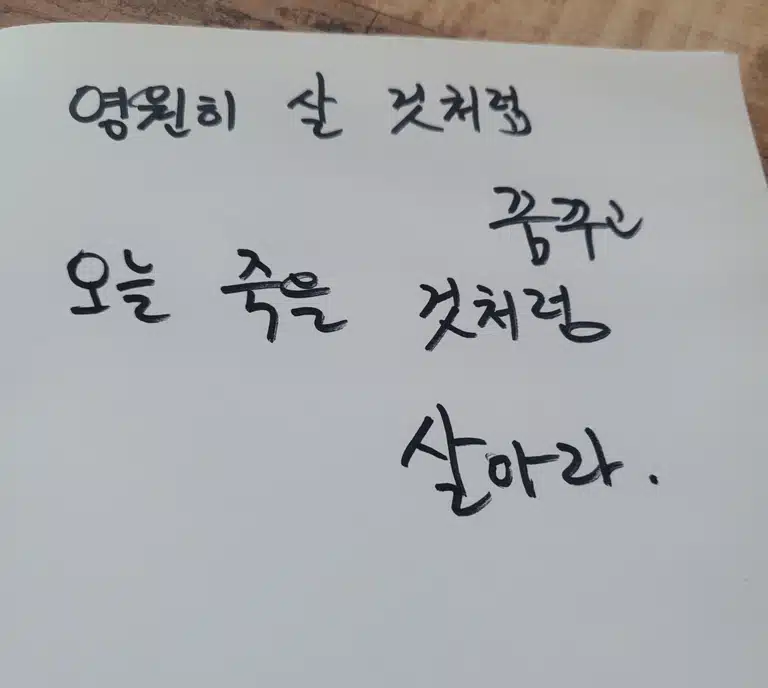 영원히 살 것처럼
꿈꾸고
오늘 죽을 것처럼
살아라.